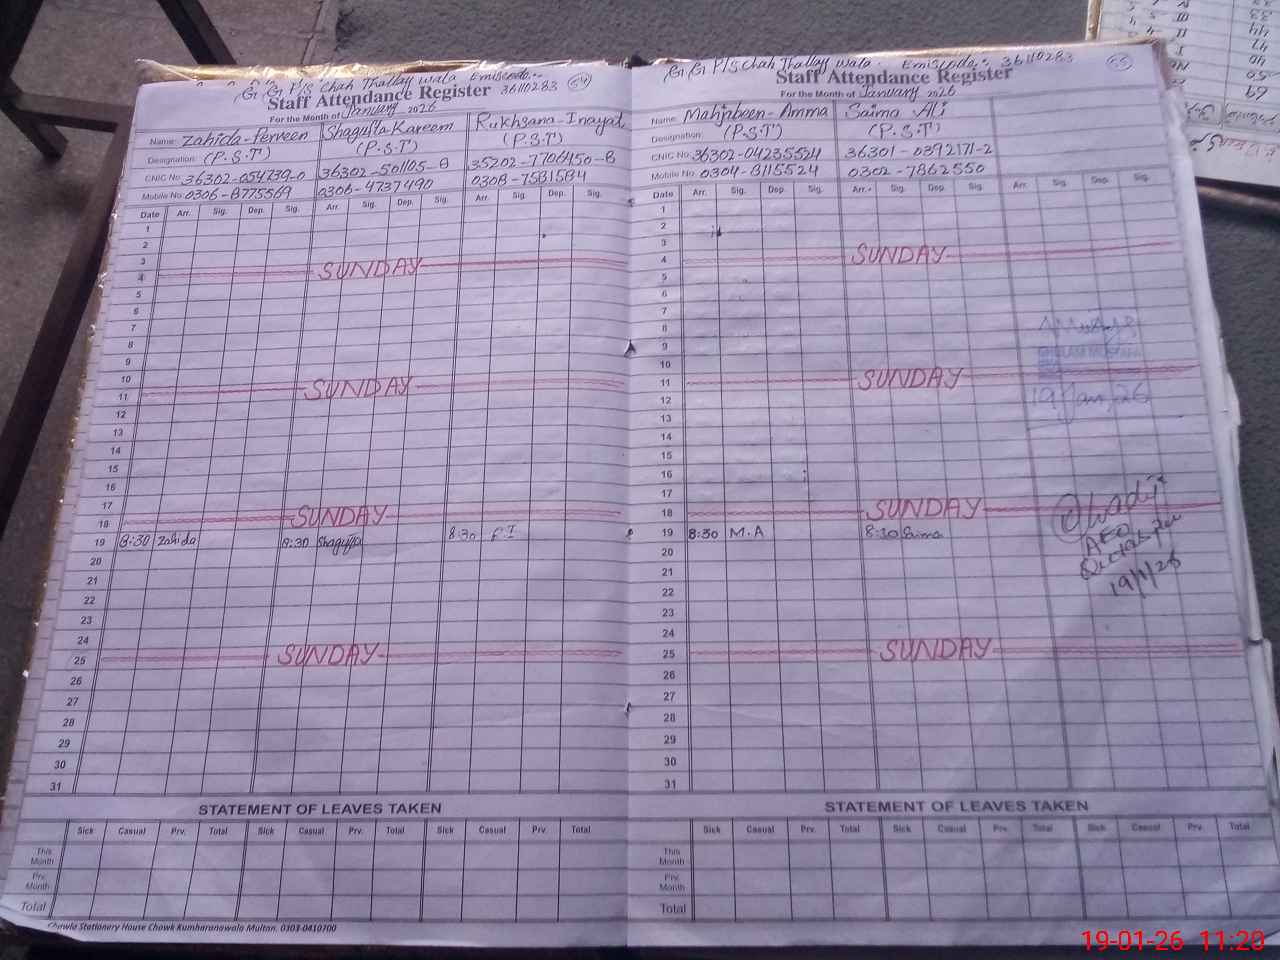 G. G P/S Chah Thallay wala Emiscode:- 36110283 (54)
Staff Attendance Register
For the Month of January 2026
Name: Zahida-Perveen Shagufta Kareem Rukhsana-Inayat
Designation: (P.S.T) (P.S.T) (P.S.T)
CNIC No. 36302-0547390-0 36302-501105-8 35202-7706450-8
Mobile No. 0306-8775569 0306-4737490 0308-7581584
Date Arr. Sig. Dep. Sig. Arr. Sig. Dep. Sig. Arr. Sig. Dep. Sig.
1
2
3
4 SUNDAY
5
6
7
8
9
10
11 SUNDAY
12
13
14
15
16
17
18 SUNDAY
19 8:30 Zahida 8:30 Shagufta 8:30 R I
20
21
22
23
24
25 SUNDAY
26
27
28
29
30
31
STATEMENT OF LEAVES TAKEN
Sick Casual Prv. Total Sick Casual Prv. Total Sick Casual Prv. Total
This Month
Prv. Month
Total
Chawla Stationery House Chowk Kumharanawala Multan. 0303-0410700
G. G P/S Chah Thallay wala. Emiscode:- 36110283 (55)
Staff Attendance Register
For the Month of January 2026
Name: Mahjabeen-Amma Saima Ali
Designation: (P.S.T) (P.S.T)
CNIC No. 36302-04235524 36301-0392171-2
Mobile No. 0304-8115524 0302-7862550
Date Arr. Sig. Dep. Sig. Arr. Sig. Dep. Sig. Arr. Sig. Dep. Sig.
1
2
3
4 SUNDAY
5
6
7
8
9
10
11 SUNDAY
12
13
14
15
16
17
18 SUNDAY
19 8:30 M.A 8:30 Saima
20
21
22
23
24
25 SUNDAY
26
27
28
29
30
31
19 Jan, 26
AEO
19/1/26
STATEMENT OF LEAVES TAKEN
Sick Casual Prv. Total Sick Casual Prv. Total Sick Casual Prv. Total
This Month
Prv. Month
Total
19-01-26 11:20